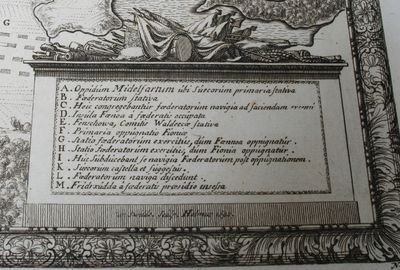 G
A. Oppidum Midelfartum ubi Suecorum primaria stativa
B. Fœderatorum stativa
C. Heic congregebantur fœderatorum navigia ad faciendam
D. Insula Fœnoa a fœderatis occupata
E. Fonschowa, Comitis Waldeccæ stativa
F. Primaria oppugnatio Fioniæ
G. Statio fœderatorum exercitus, dum Fœnnia oppugnatur.
H. Statio fœderatorum exercitus, dum Fionia oppugnatur.
I. Huc Subducebant se navigia Fœderatorum post oppugnationem.
K. Suecorum castella et suggestus.
L. Fœderatorum navigia discedunt.
M. Fridrxudda a fœderatis præsidio insessa
W. Swidde. Sculp. Holmiæ